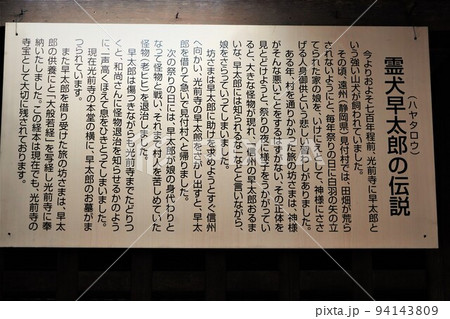 霊犬早太郎の伝説
(ハヤタロウ)
今よりおよそ七百年程前、光前寺に早太郎と
いう強い山犬が飼われていました。
その頃、遠州(静岡県)見付村では、田畑が荒ら
されないようにと、毎年祭りの日に白羽の矢の立
てられた家の娘を、いけにえとして、神様にささ
げる人身御供という悲しい習わしがありました。
ある年、村を通りかかった旅の坊さまは、神様
がそんな悪いことをするはずがない、その正体を
見とどけようと、祭りの夜に様子をうかがってい
ると、大きな怪物が現れ、『信州の早太郎おるま
いな、早太郎には知られるな』などと言いながら、
娘をさらっていってしまいました。
坊さまは早太郎に助けを求めようとすぐ信州
へ向かい、光前寺の早太郎をさがし出すと、早太
郎を借りて急いで見付村へと帰りました。
次の祭りの日には、早太郎が娘の身代わりと
なって怪物と戦い、それまで村人を苦しめていた
怪物(老ヒヒ)を退治しました。
早太郎は傷つきながらも光前寺までたどりつ
くと、和尚さんに怪物退治を知らせるかのよう
に、一声高くほえて息をひきとってしまいました。
現在光前寺の本堂の横に、早太郎のお墓がま
つられています。
また早太郎を借り受けた旅の坊さまは、早太
郎の供養にと『大般若経』を写経し光前寺に奉
納いたしました。この経本は現在でも、光前寺の
寺宝として大切に残されております。
PIXTA
pixta.jp - 94143809